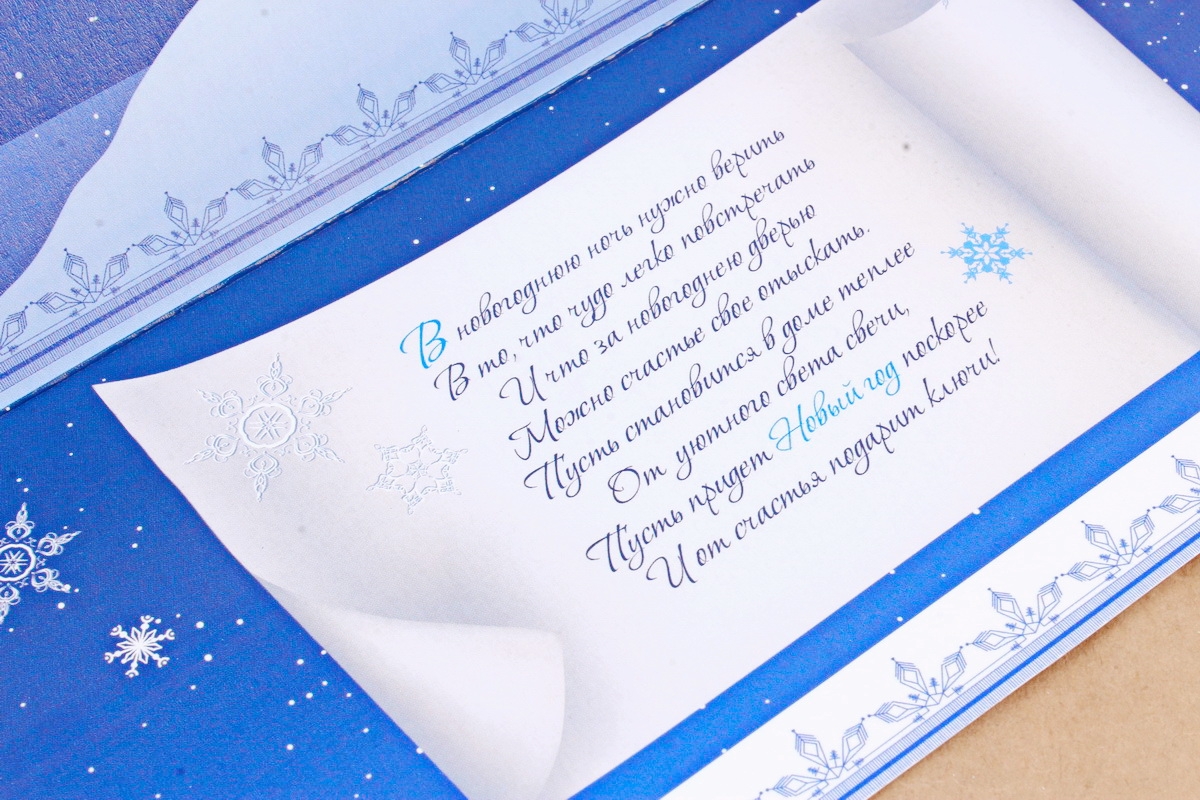 В новогоднюю ночь нужно верить
В то, что чудо легко повстречать
И что за новогоднею дверью
Можно счастье свое отыскать.
Пусть становится в доме теплее
От уютного света свечи,
Пусть придет Новый год поскорее
И от счастья подарит ключи!